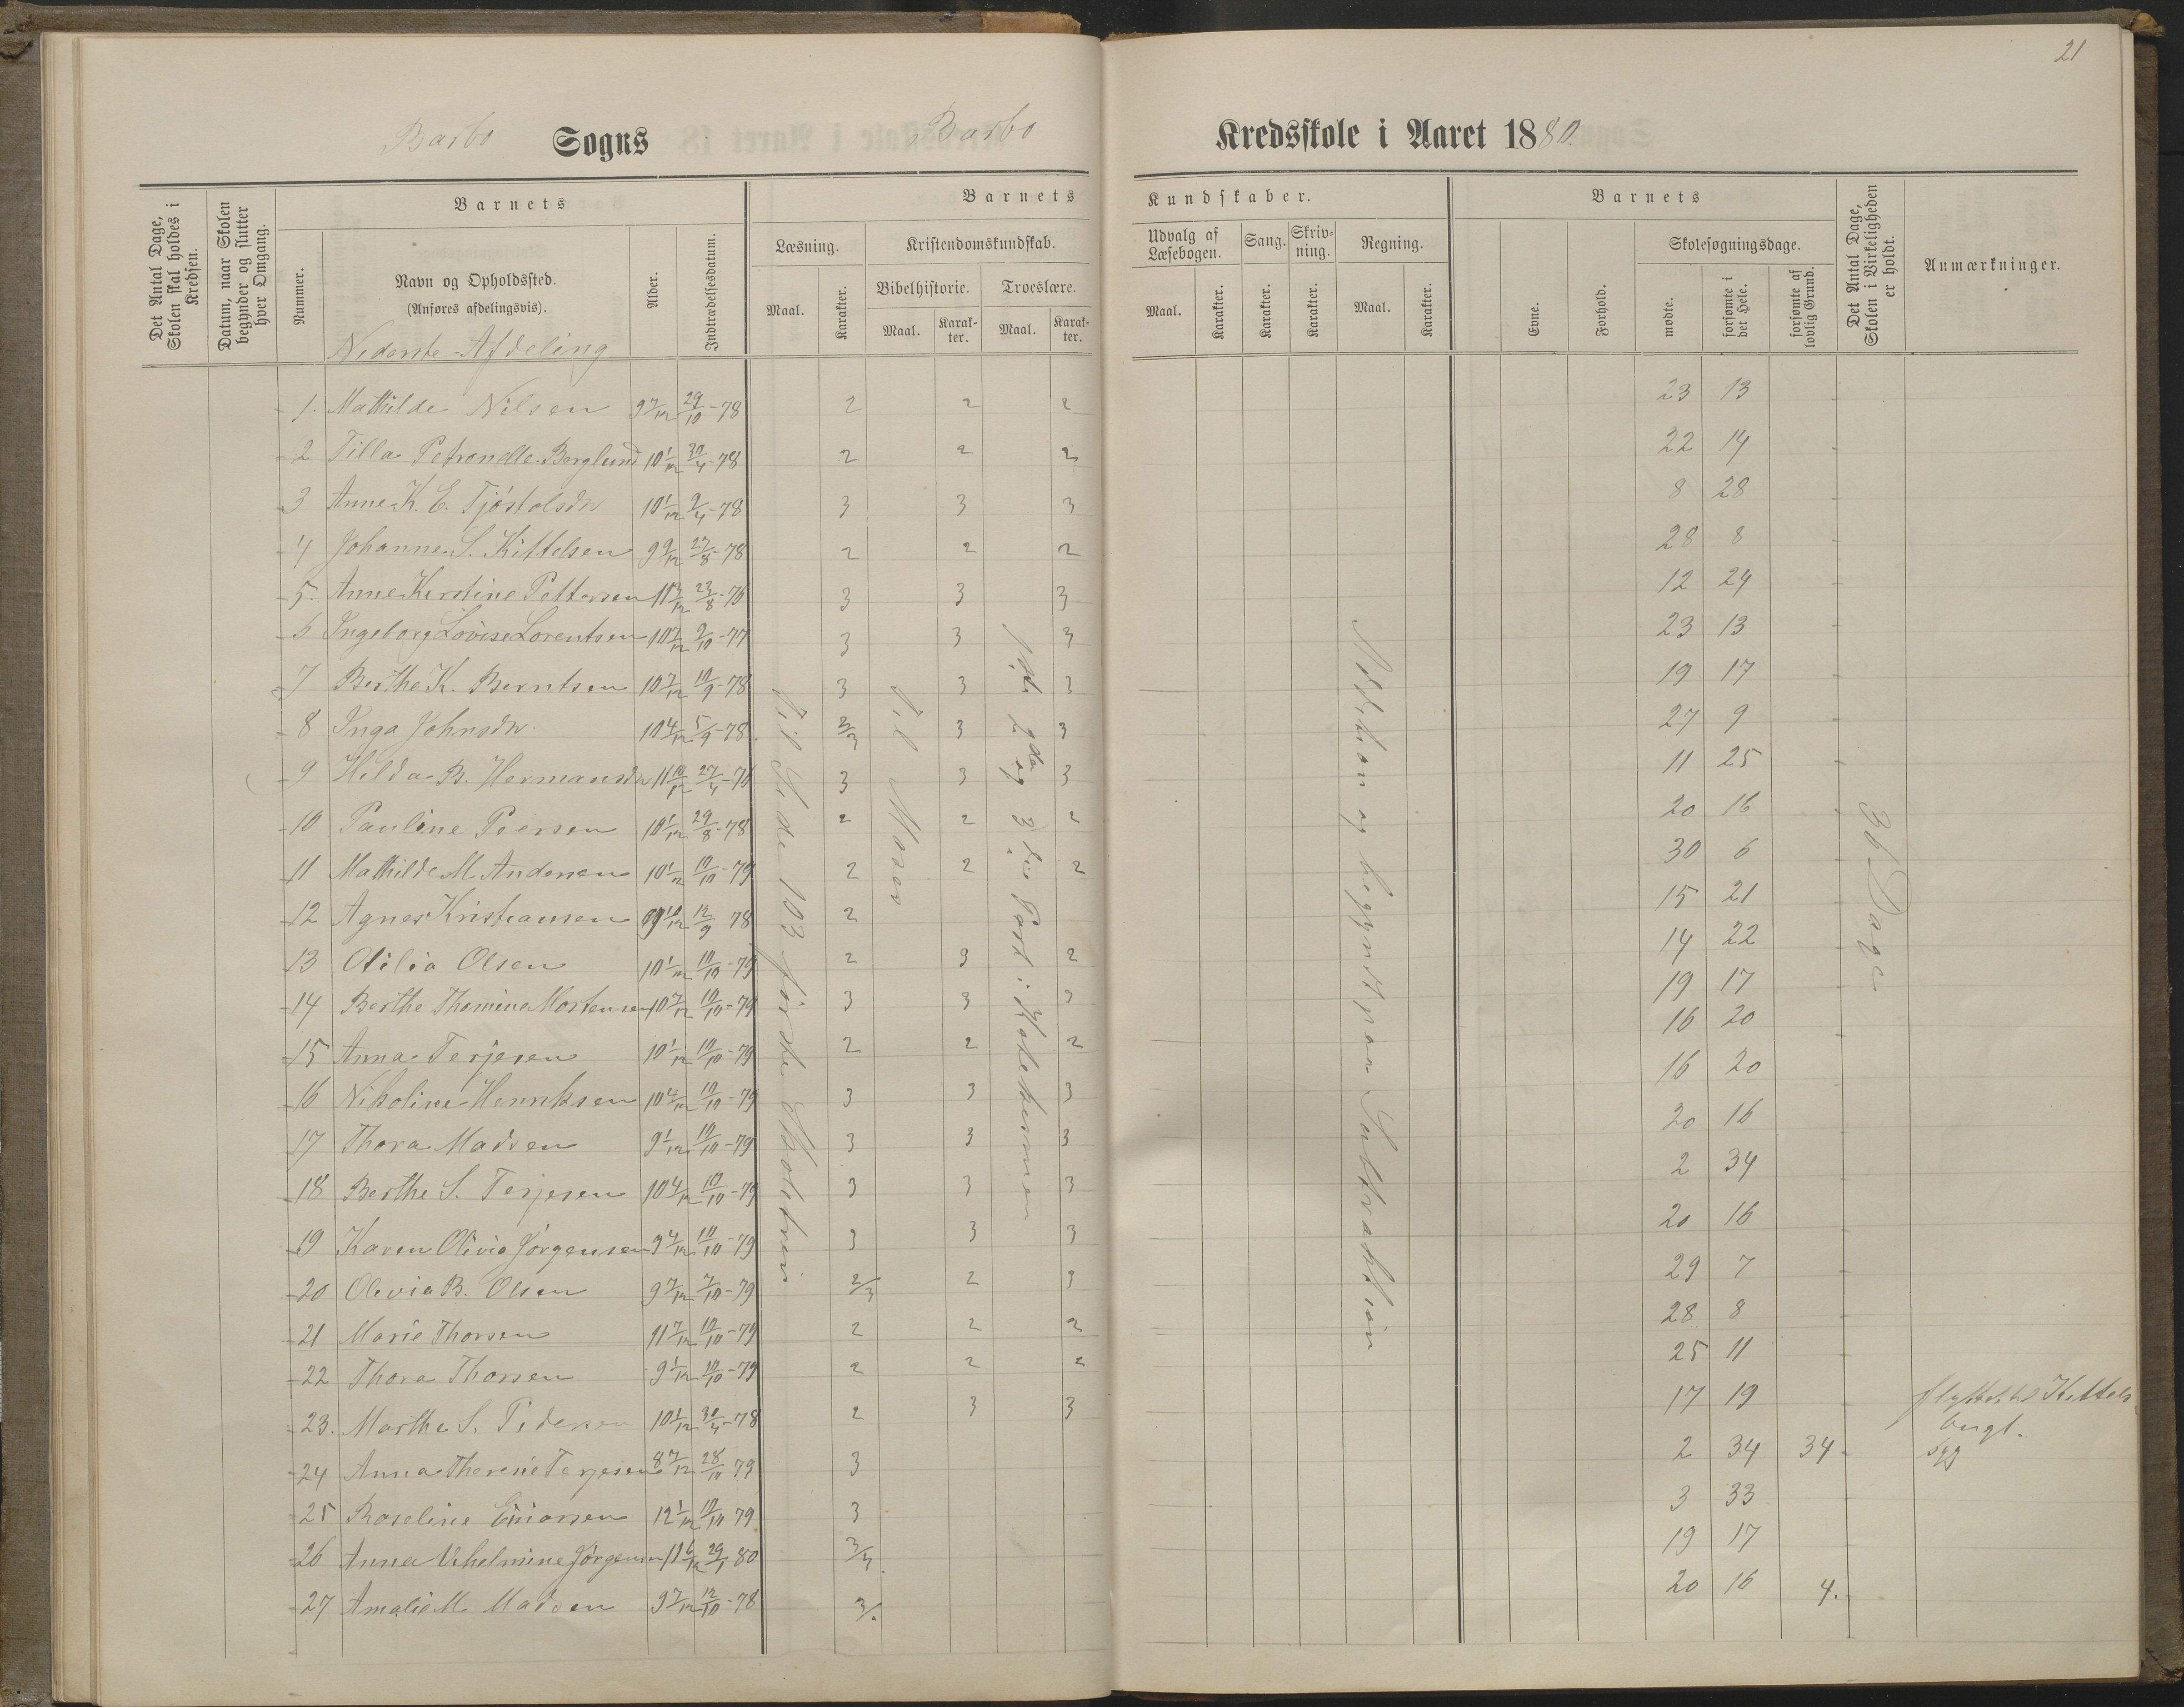 21
Barbo Sogns Barbo Kredsskole i Aaret 1880.
Det Antal Dage, Skolen skal holdes i Kredsen.
Datum, naar Skolen begynder og slutter hver Omgang.
Barnets
Nummer.
Navn og Opholdssted.
(Anføres afdelingsvis).
Nederste Afdeling
Alder.
Indtrædelsesdatum.
Barnets Kundskaber.
Læsning.
Maal.
Karakter.
Kristendomskundskab.
Bibelhistorie.
Maal.
Karakter.
Troeslære.
Maal.
Karakter.
Udvalg af Læsebogen.
Maal.
Karakter.
Sang.
Karakter.
Skrivning.
Karakter.
Regning.
Maal.
Karakter.
Barnets
Evne.
Forhold.
Skolesøgningsdage.
mødte.
forsømte i det Hele.
forsømte af lovlig Grund.
Det Antal Dage, Skolen i Virkeligheden er holdt.
Anmærkninger.
1. Mathilde Nilsen 9 7/12 29/10-78 2 2 2 23 13
2 Tilla Petronelle Berglund 10 1/12 30/4-78 2 2 2 22 14
3 Anne K. E. Tjøstolsdr 10 1/12 2/4-78 3 3 3 8 28
4 Johanne S. Kittelsen 9 9/12 27/8-78 2 2 2 28 8
5. Anne Kirstine Pettersen 11 3/12 23/8-76 3 3 3 12 24
6 Ingeborg Lovise Lorentsen 10 7/12 9/10-77 3 3 3 23 13
7 Berthe K. Berntsen 10 7/12 10/9-78 3 3 3 19 17
8 Inga Johnsdr. 10 4/12 5/9-78. 2/3 3 3 27 9
9 Hilda B. Hermansdr 11 10/12 27/4-76 3 3 3 11 25
10 Pauline Peersen 10 1/12 29/8-78 2 2 2 20 16
11 Mathilde M. Andersen 10 1/12 10/10-79 2 2 2 30 6
12 Agnes Kristiansen 9 10/12 12/9 78 2 15 21
13 Otilia Olsen 10 1/12 10/10-79 2 3 2 14 22
14 Berthe Thomine Mortensen 10 7/12 10/10-79 3 3 3 19 17
15 Anna Terjesen 10 1/12 10/10-79 2 2 2 16 20
16 Nikoline Henriksen 10 4/12 10/10-79 3 3 3 16 20
17 Thora Madsen 9 1/12 10/10-79 3 3 3 20 16
18 Berthe S. Terjesen 10 4/12 10/10-79 3 3 3 2 34
19 Karen Olivia Jørgensen 9 4/12 10/10-79 3 3 3 20 16
20 Olevia B. Olsen 9 7/12 7/10-79 2/3 2 3 29 7
21 Marie Thorsen 11 7/12 10/10-79 2 2 2 28 8
22 Thora Thorsen 9 1/12 10/10-79 2 2 2 25 11
23. Marthe S. Pedersen 10 1/12 30/4-78 2 3 3 17 19 flyttet til Kittels
bugt.
24 Anna Theresie Terjesen 8 7/12 28/10 79 3 2 34 34 syg
25 Roseline Einarsen 12 1/12 10/10 79 3 3 33
26 Anna Vilhelmine Jørgensen 11 6/12 29/1 80 3/4. 19 17
27 Amalie M. Madsen 9 7/12 12/10-78 3/. 20 16 4.
Til Side 103 første Skoletrin
Til Moses
1ste 2den og 3die Part i Katekismen
Addition og begyndt paa Subtraktion
36 Dage